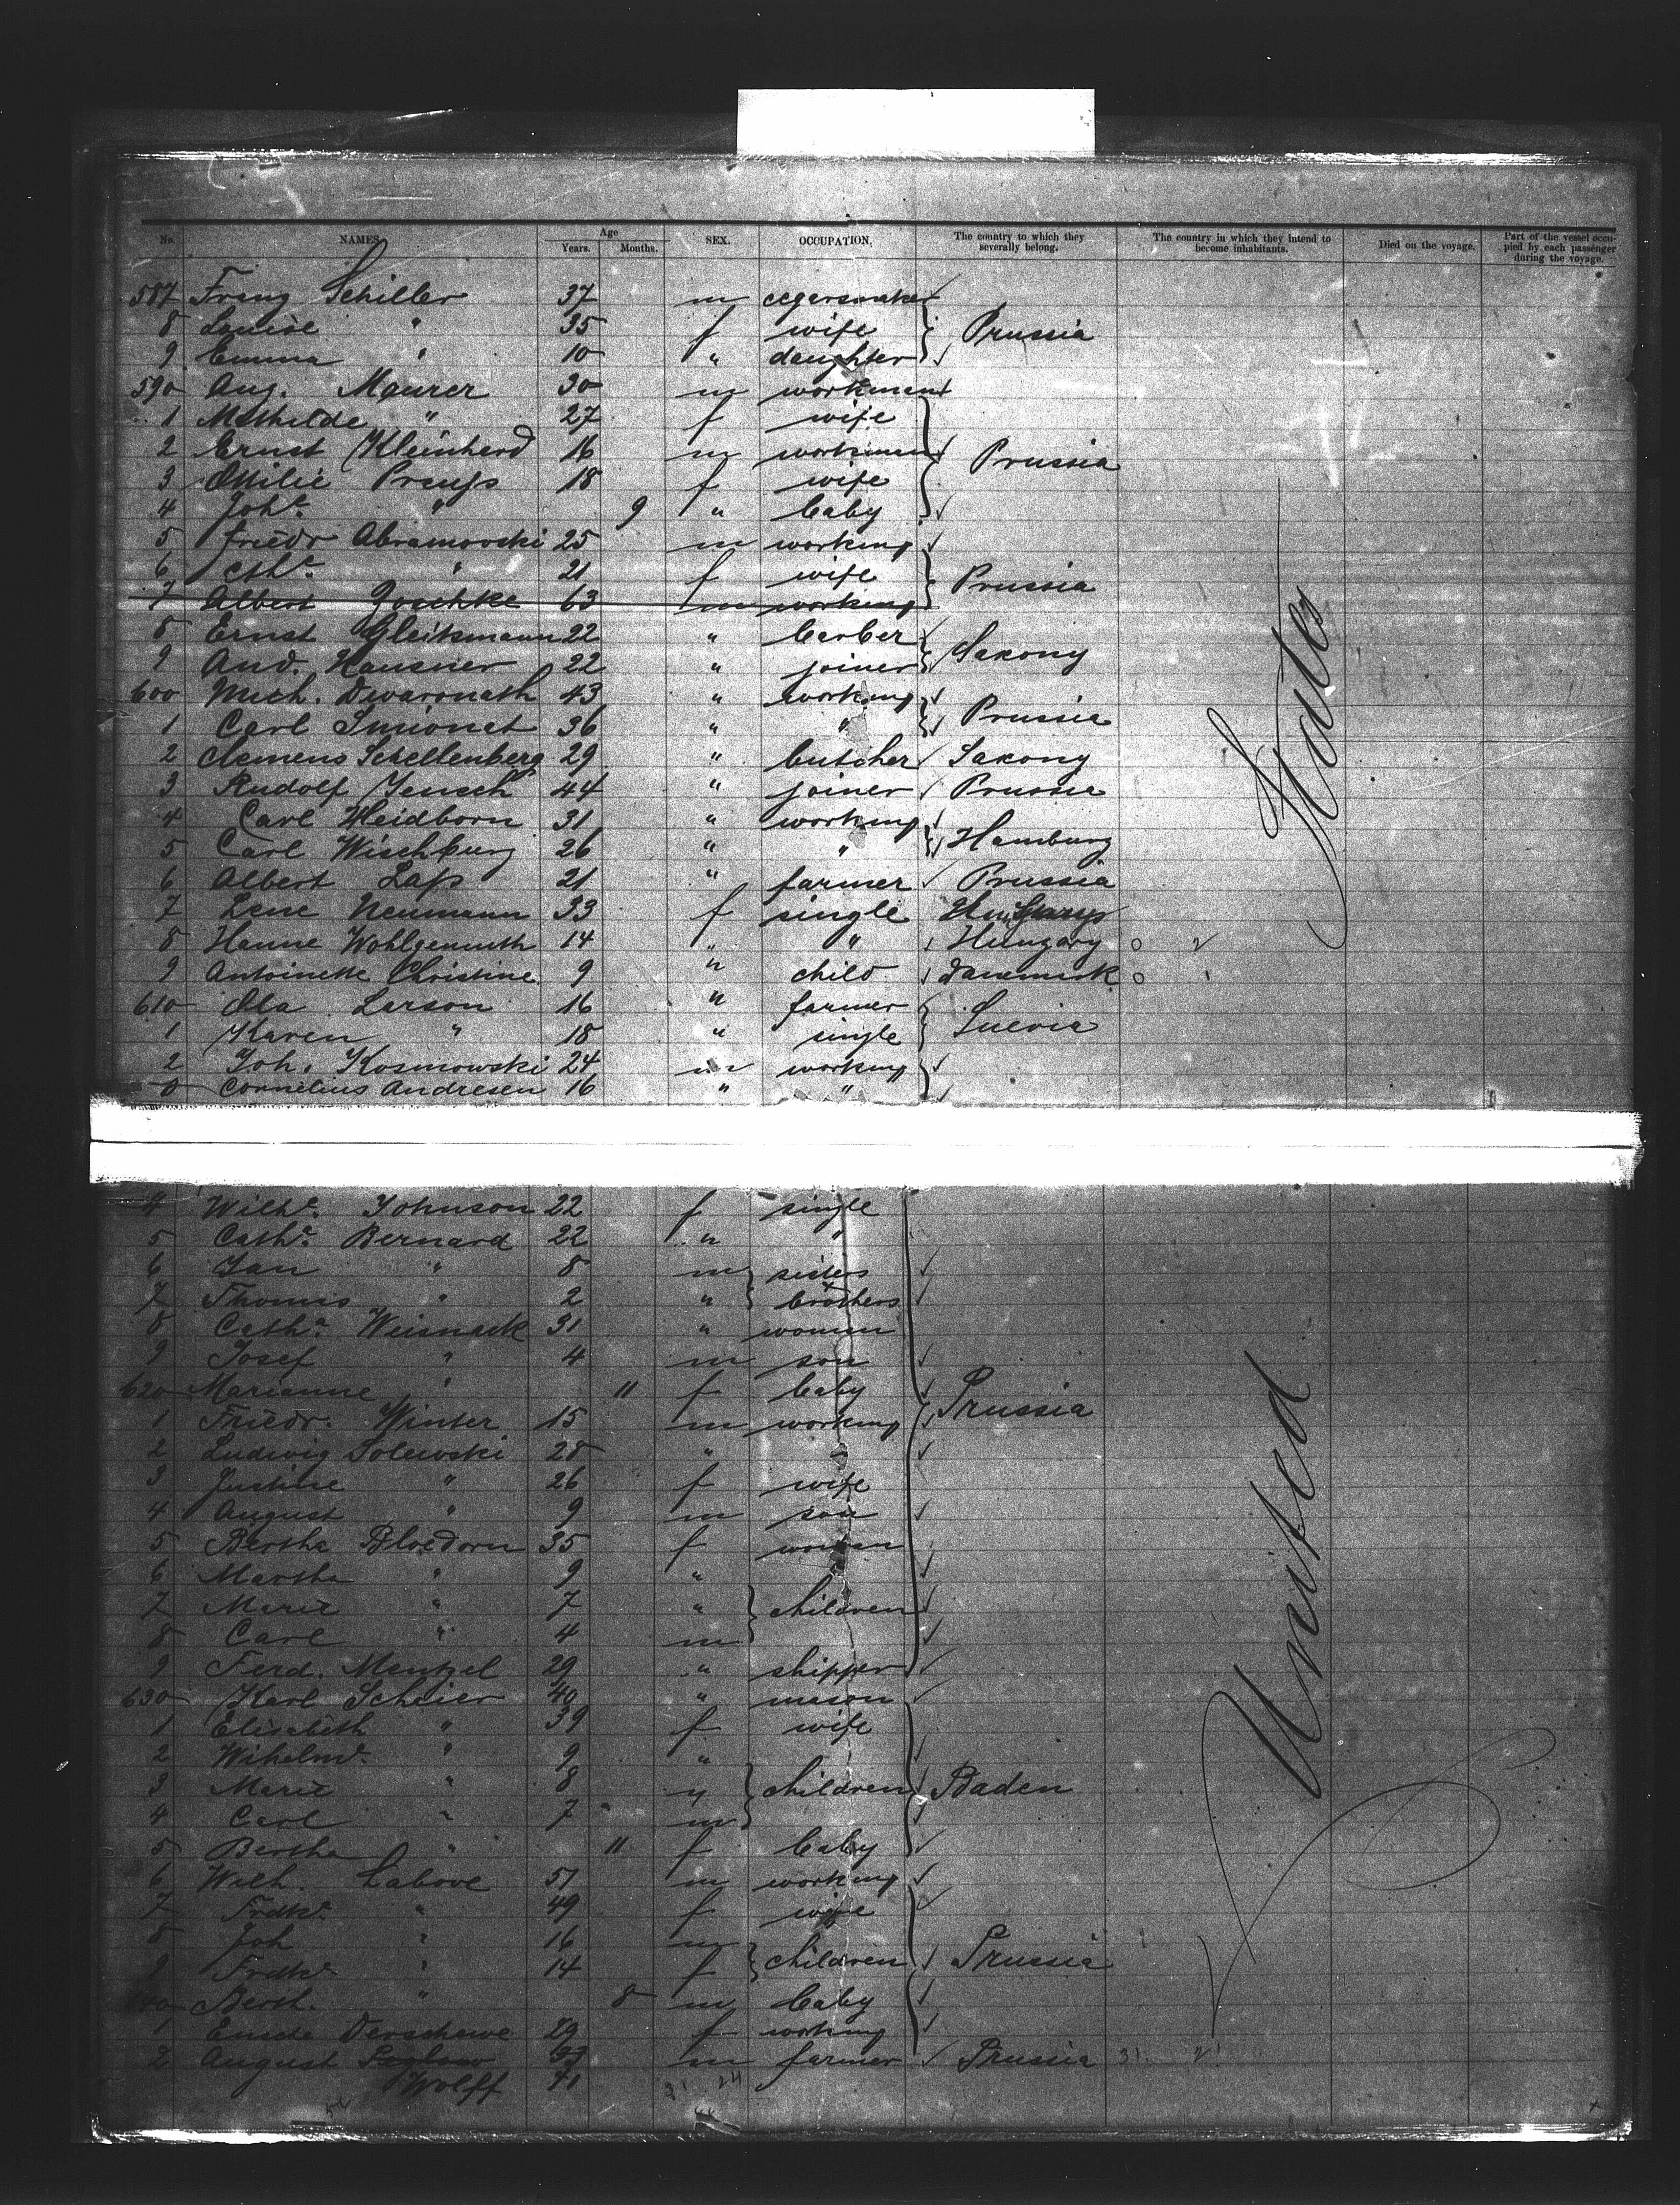 No. NAMES. Age Years. Months. SEX. OCCUPATION. The country to which they severally belong. The country in which they intend to become inhabitants. Died on the voyage. Part of the vessel occupied by each passenger during the voyage.
587 Franz Schiller 37 m cegarsmaker
8 Louise " 35 f wife Prussia
9 Emma " 10 " daughter
590 Aug. Maurer 30 m workman
1 Mathilde " 27 f wife
2 Ernst Kleinherd 16 m workman Prussia
3 Ottilie Preuss 18 f wife
4 Joh. " 9 " baby
5 Friedr Abramowski 25 m working
6 " 21 f wife Prussia
7 Albert 63 m working
8 Ernst Gleitsmann 22 " barber
9 And. Hausner 22 " joiner Saxony
600 Mich. Dwaronath 43 " working
1 Carl Simonat 36 " " Prussia
2 Clemens Schellenberg 29 " butcher Saxony
3 Rudolf Jensch 44 " joiner Prussia
4 Carl Heidborn 31 " working
5 Carl Wischburg 26 " " Hamburg
6 Albert Laps 21 " farmer Prussia
7 Lene Neumann 33 f single
8 Hanne Wohlgemuth 14 " " Hungary
9 Antoinette Christine 9 " child Danemark
610 Ola Larson 16 " farmer
1 Karen " 18 " single Suevia
2 Joh. Kosmowski 24 m working
Cornelius Andresen 16 " "
4 Wilh. Johnson 22 f single
5 Cath. Bernard 22 " "
6 Jan " 8 m sisters
7 Thomas " 2 " + brothers
8 Cath. Weisnack 31 " woman
9 Josef " 4 m son
620 Marianne " 11 f baby Prussia
1 Friedr. Winter 15 m working
2 Ludwig Solewski 28 " "
3 Justine " 26 f wife
4 August " 9 m son
5 Bertha Bloedorn 35 f woman
6 Martha " 9 "
7 Marie " 7 " children
8 Carl " 4 m
9 Ferd. Mentzel 29 " shipper
630 Karl Scheier 40 " mason
1 Elisabeth " 39 f wife
2 Wihelm. " 9 "
3 Marie " 8 " children Baden
4 Carl " 7 m
5 Bertha " 11 f baby
6 Wilh. Labove 51 m working
7 Fredk. " 49 f wife
8 Joh " 16 m
9 Fredk. " 14 f children Prussia
640 Berth. " 8 m baby
1 Derschewe 29 f working
2 August m farmer Prussia
Wolff 41
United States